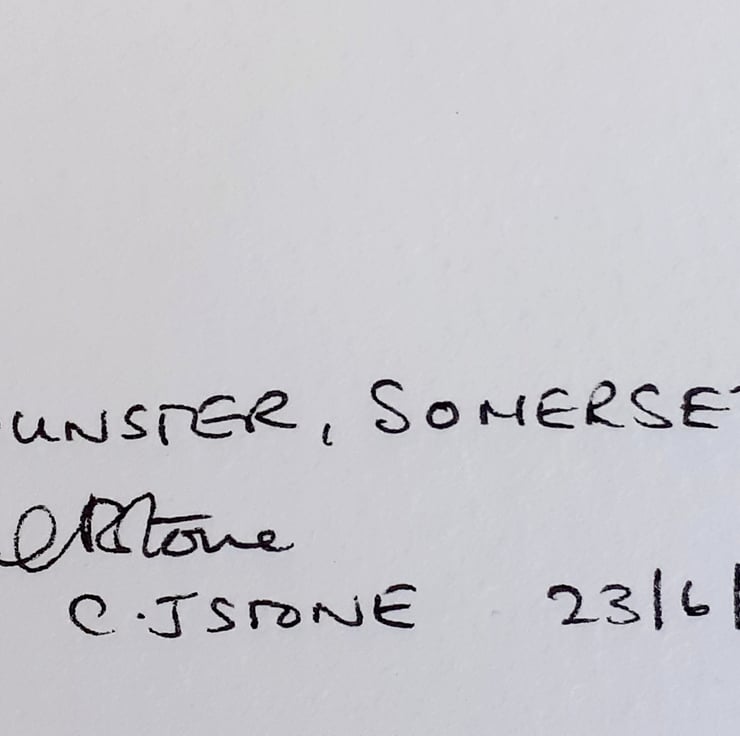 UNSTER, SOMERSE
Stone
C.J STONE 23/6/